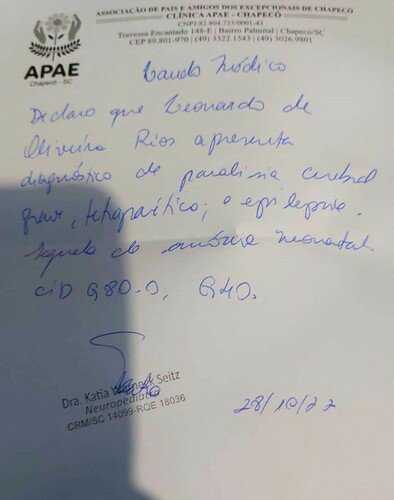 ASSOCIAÇÃO DE PAIS E AMIGOS DOS EXCEPCIONAIS DE CHAPECÓ
CLÍNICA APAE - CHAPECÓ
CNPJ 82.804.733/0001-43
Travessa Encantado 148-E | Bairro Palmital | Chapecó/SC
CEP 89.801-970 | (49) 3322.1543 | (49) 3026.9801
APAE
Chapecó - SC
Laudo Médico
Declaro que Leonardo de
Oliveira Rios apresenta
diagnóstico de paralisia cerebral
grave, tetraparético; e epilepsia.
Sequela de neonatal.
CID G80.0, G40.
Dra. Katia Seitz
Neuropediatra
CRM/SC 14099-RQE 18036
28/10/22